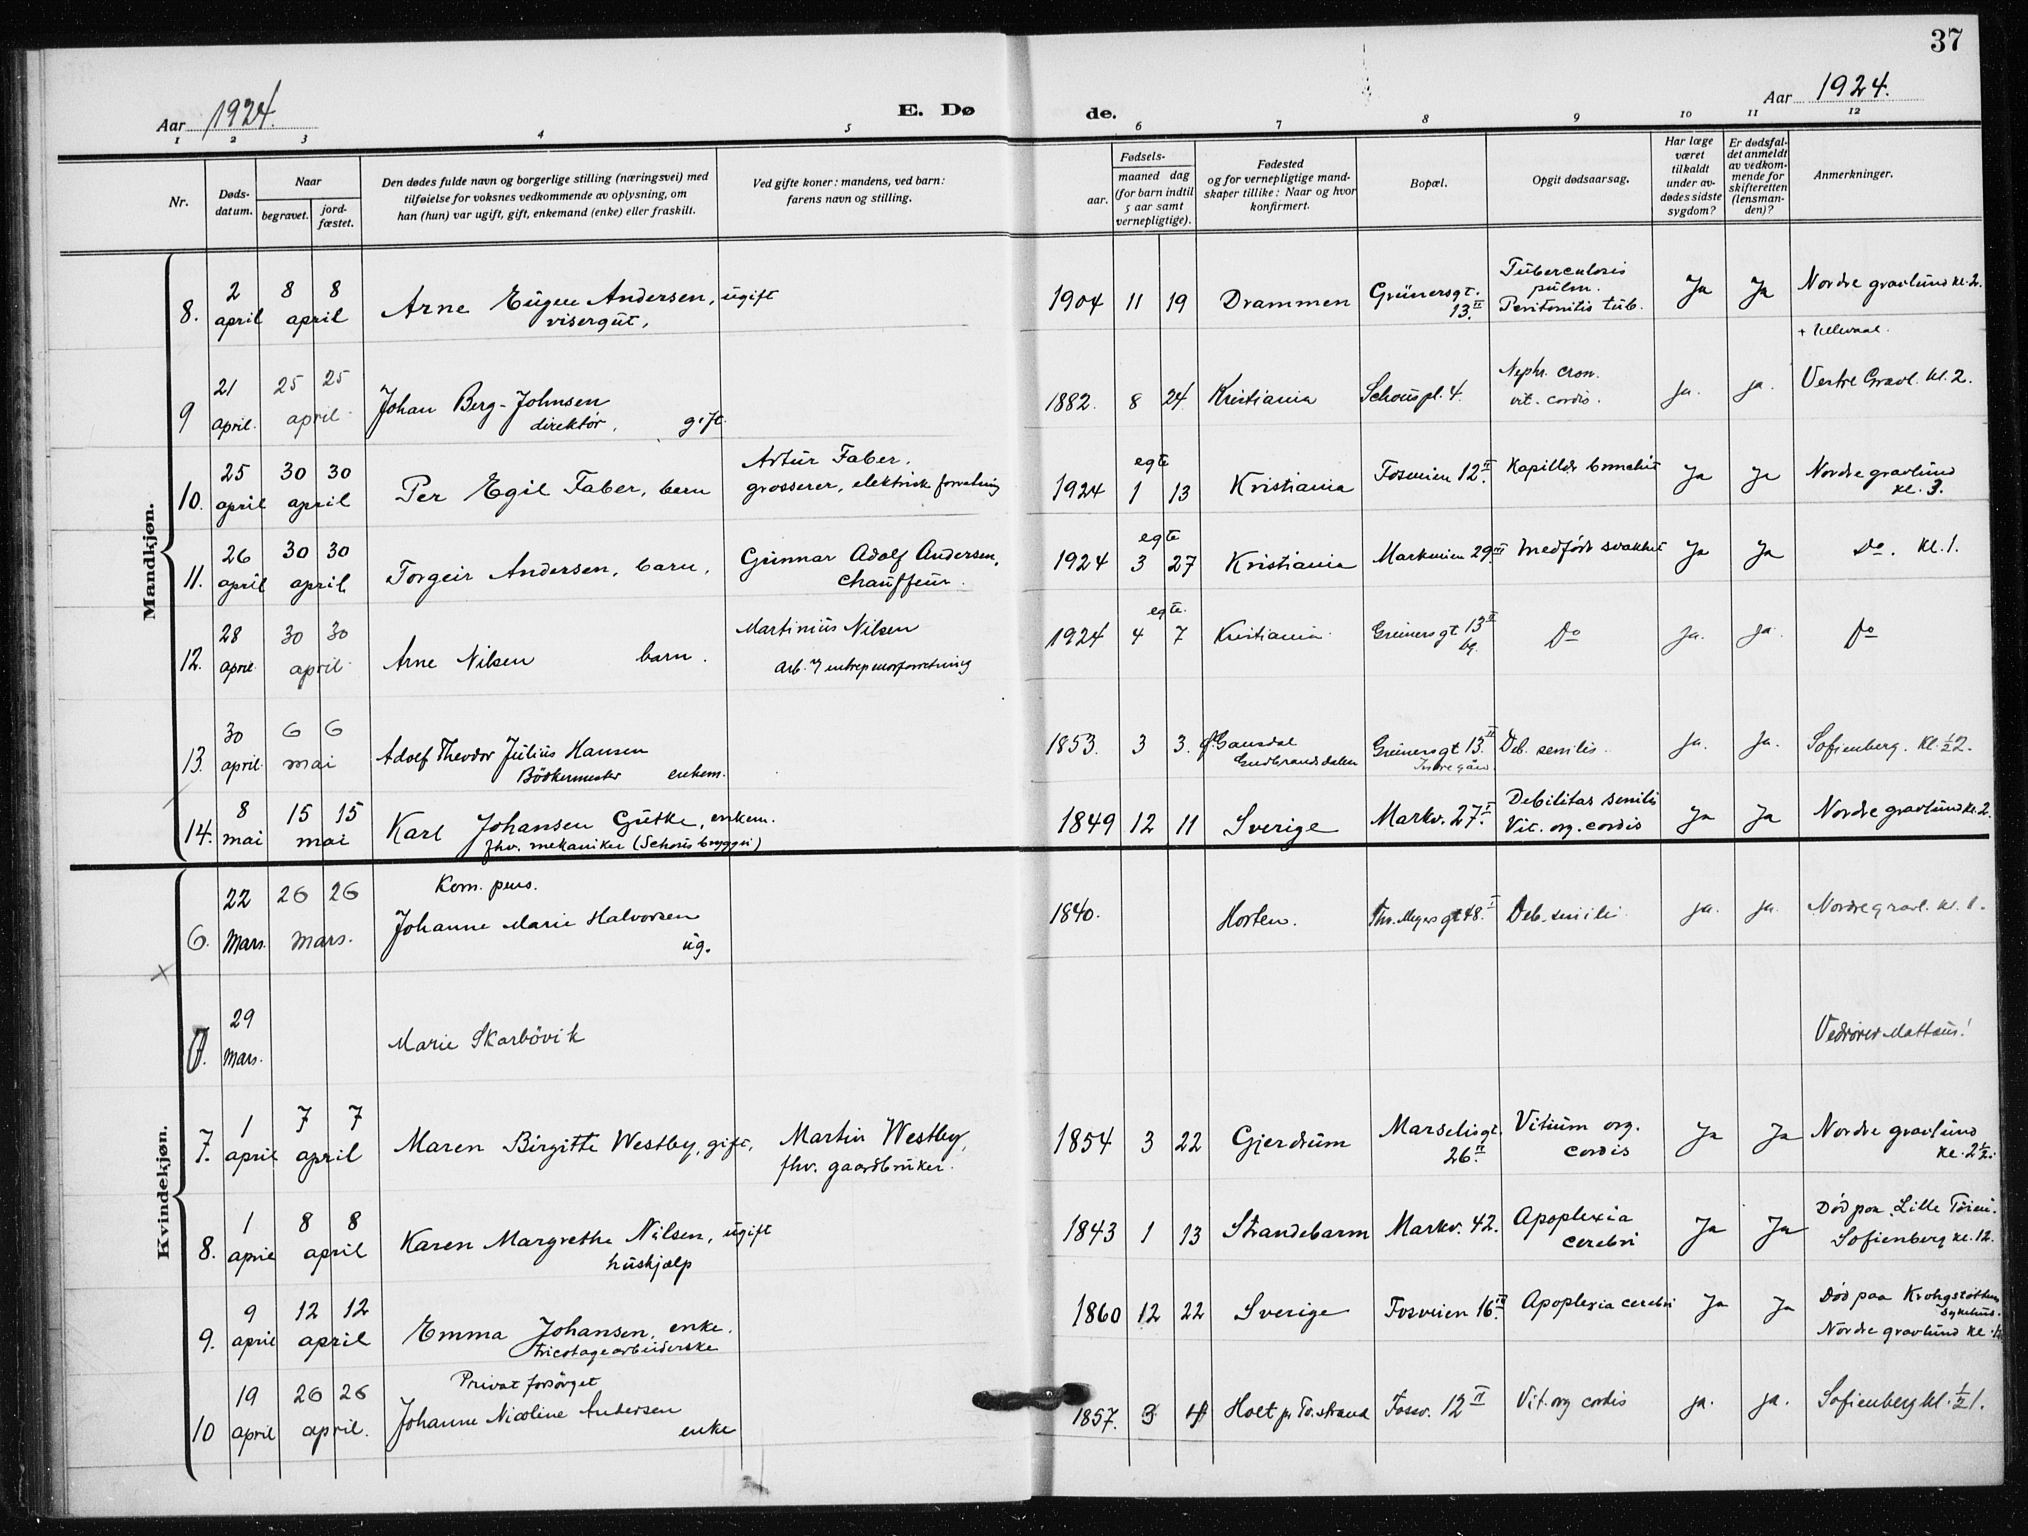 37
Aar 1924.
E. Dø
de.
Aar 1924.
1 2 3 4 5 6 7 8 9 10 11 12
Nr.
Døds-
datum.
Naar
begravet.
jord-
fæstet.
Den dødes fulde navn og borgerlige stilling (næringsvei) med
tilføielse for voksnes vedkommende av oplysning, om
han (hun) var ugift, gift, enkemand (enke) eller fraskilt.
Ved gifte koner: mandens, ved barn:
farens navn og stilling.
Fødsels-
aar.
maaned dag
(for barn indtil
5 aar samt
vernepligtige).
Fødested
og for vernepligtige mand-
skaper tillike: Naar og hvor
konfirmert.
Bopæl.
Opgit dødsaarsag.
Har læge
været
tilkaldt
under av-
dødes sidste
sygdom?
Er dødsfal-
det anmeldt
av vedkom-
mende for
skifteretten
(lensman-
den)?
Anmerkninger.
Mandkjøn.
8.
2
april
8 8
april
Arne Eugen Andersen, ugift
visergut.
1904 11 19
Drammen
Grünersgt.
13. II
Tuberculosis
pulm.
Peritonitis tub.
Ja
Ja
Nordre gravlund kl. 2.
+ Ullevaal.
9
21
april.
25 25
april.
Johan Berg-Johnsen
direktør, gift.
1882. 8 24
Kristiania
Schouspl. 4.
Nephr. cron.
vit. cordis.
ja.
ja.
Vestre Gravl. kl. 2.
10.
25
april
30 30
april
Per Egil Faber, barn
Artur Faber,
grosserer, elektrisk forretning
egte
1924 1 13
Kristiania
Fossveien 12. II
Kapillær bronchit
Ja
Ja
Nordre gravlund
kl. 3.
11.
26
april
30 30
april
Torgeir Andersen, barn.
Gunnar Adolf Andersen,
chauffeur.
egte
1924 3 27
Kristiania
Markveien 29. III
medfødt svakhet
Ja
Ja
Do. kl. 1.
12.
28
april
30 30
april.
Arne Nilsen barn.
Martinius Nilsen
arb. i entreprenørforretning
egte.
1924 4 7
Kristiania.
Grünersgt 13 II
bg.
Do
ja.
ja.
Do
13.
30
april.
6 6
mai
Adolf Theodor Julius Hansen
Bödkermester enkem.
1853. 3 3.
Gausdal
Gudbrandsdalen
Grünersgt 13. II
Indre gård.
Deb. senilis.
ja.
ja.
Sofienberg. Kl. ½2.
14.
8
mai
15 15
mai
Karl Johansen Gutke, enkem.
fhv. mekaniker (Schous bryggeri)
1849 12 11
Sverige
Markv. 27. I
Debilitas senilis
Vit. org. cordis
Ja
Ja
Nordre gravlund kl. 2.
Kvindekjøn.
6.
22
Mars.
26 26
mars.
Kom. pens.
Johanne Marie Halvorsen
ug.
1840.
Horten.
Thv. Meyers gt 48. I
Deb. senilis
ja.
ja.
Nordre gravl. kl. 1.
7.
29
Mars.
Marie Skarbövik
Vedrører Mattæus!
7.
1
april
7 7
april
Maren Birgitte Westby, gift,
Martin Westby,
fhv. gaardbruker.
1854 3 22
Gjerdrum
Marselisgt.
26. II
Vitium org.
cordis
Ja
Ja
Nordre gravlund
kl. 2½.
8.
1
april
8 8
april
Karen Margrethe Nilsen, ugift
hushjælp
1843 1 13
Strandebarm
Markv. 42.
Apoplexia
cerebri
Ja
Ja
Død paa Lille Tøien.
Sofienberg kl. 12.
9.
9
april
12 12
april
Emma Johansen, enke.
tricotagearbeiderske
1860 12 22
Sverige
Fosveien 16.
Apoplexia cerebri
Ja
Ja
Død paa Krohgstøttens
sykehus.
Nordre gravlund kl.
10
19
april
26 26
april.
Privat forsörget
Johanne Nicoline Andersen
enke
1857. 3 4
Holt pr Tv.strand
Fossv. 12 II
Vit. org cordis
ja.
ja.
Sofienberg kl. ½1.